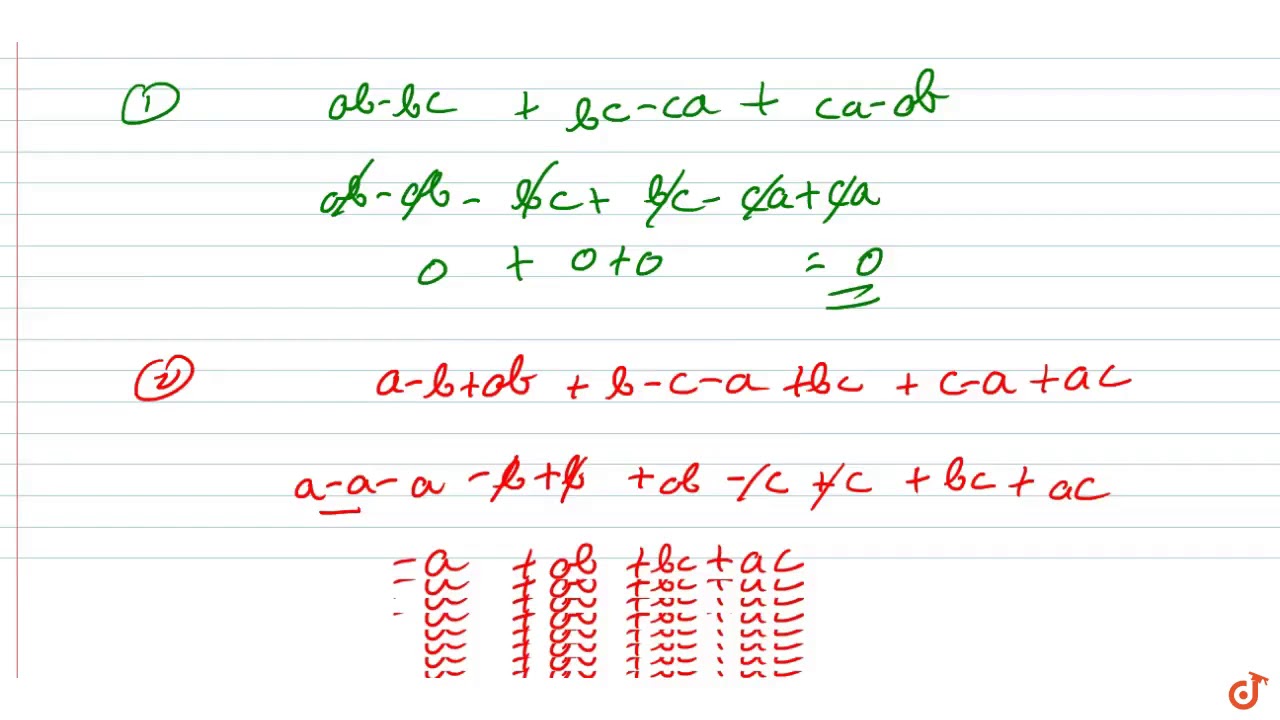 ① ab-bc + bc-ca + ca-ab
ab - ab - bc + bc - ca + ca
0 + 0 + 0 = 0
② a-b+ab + b-c-a +bc + c-a+ac
a-a-a -b+b +ab -c +c +bc+ac
-a +ab +bc+ac